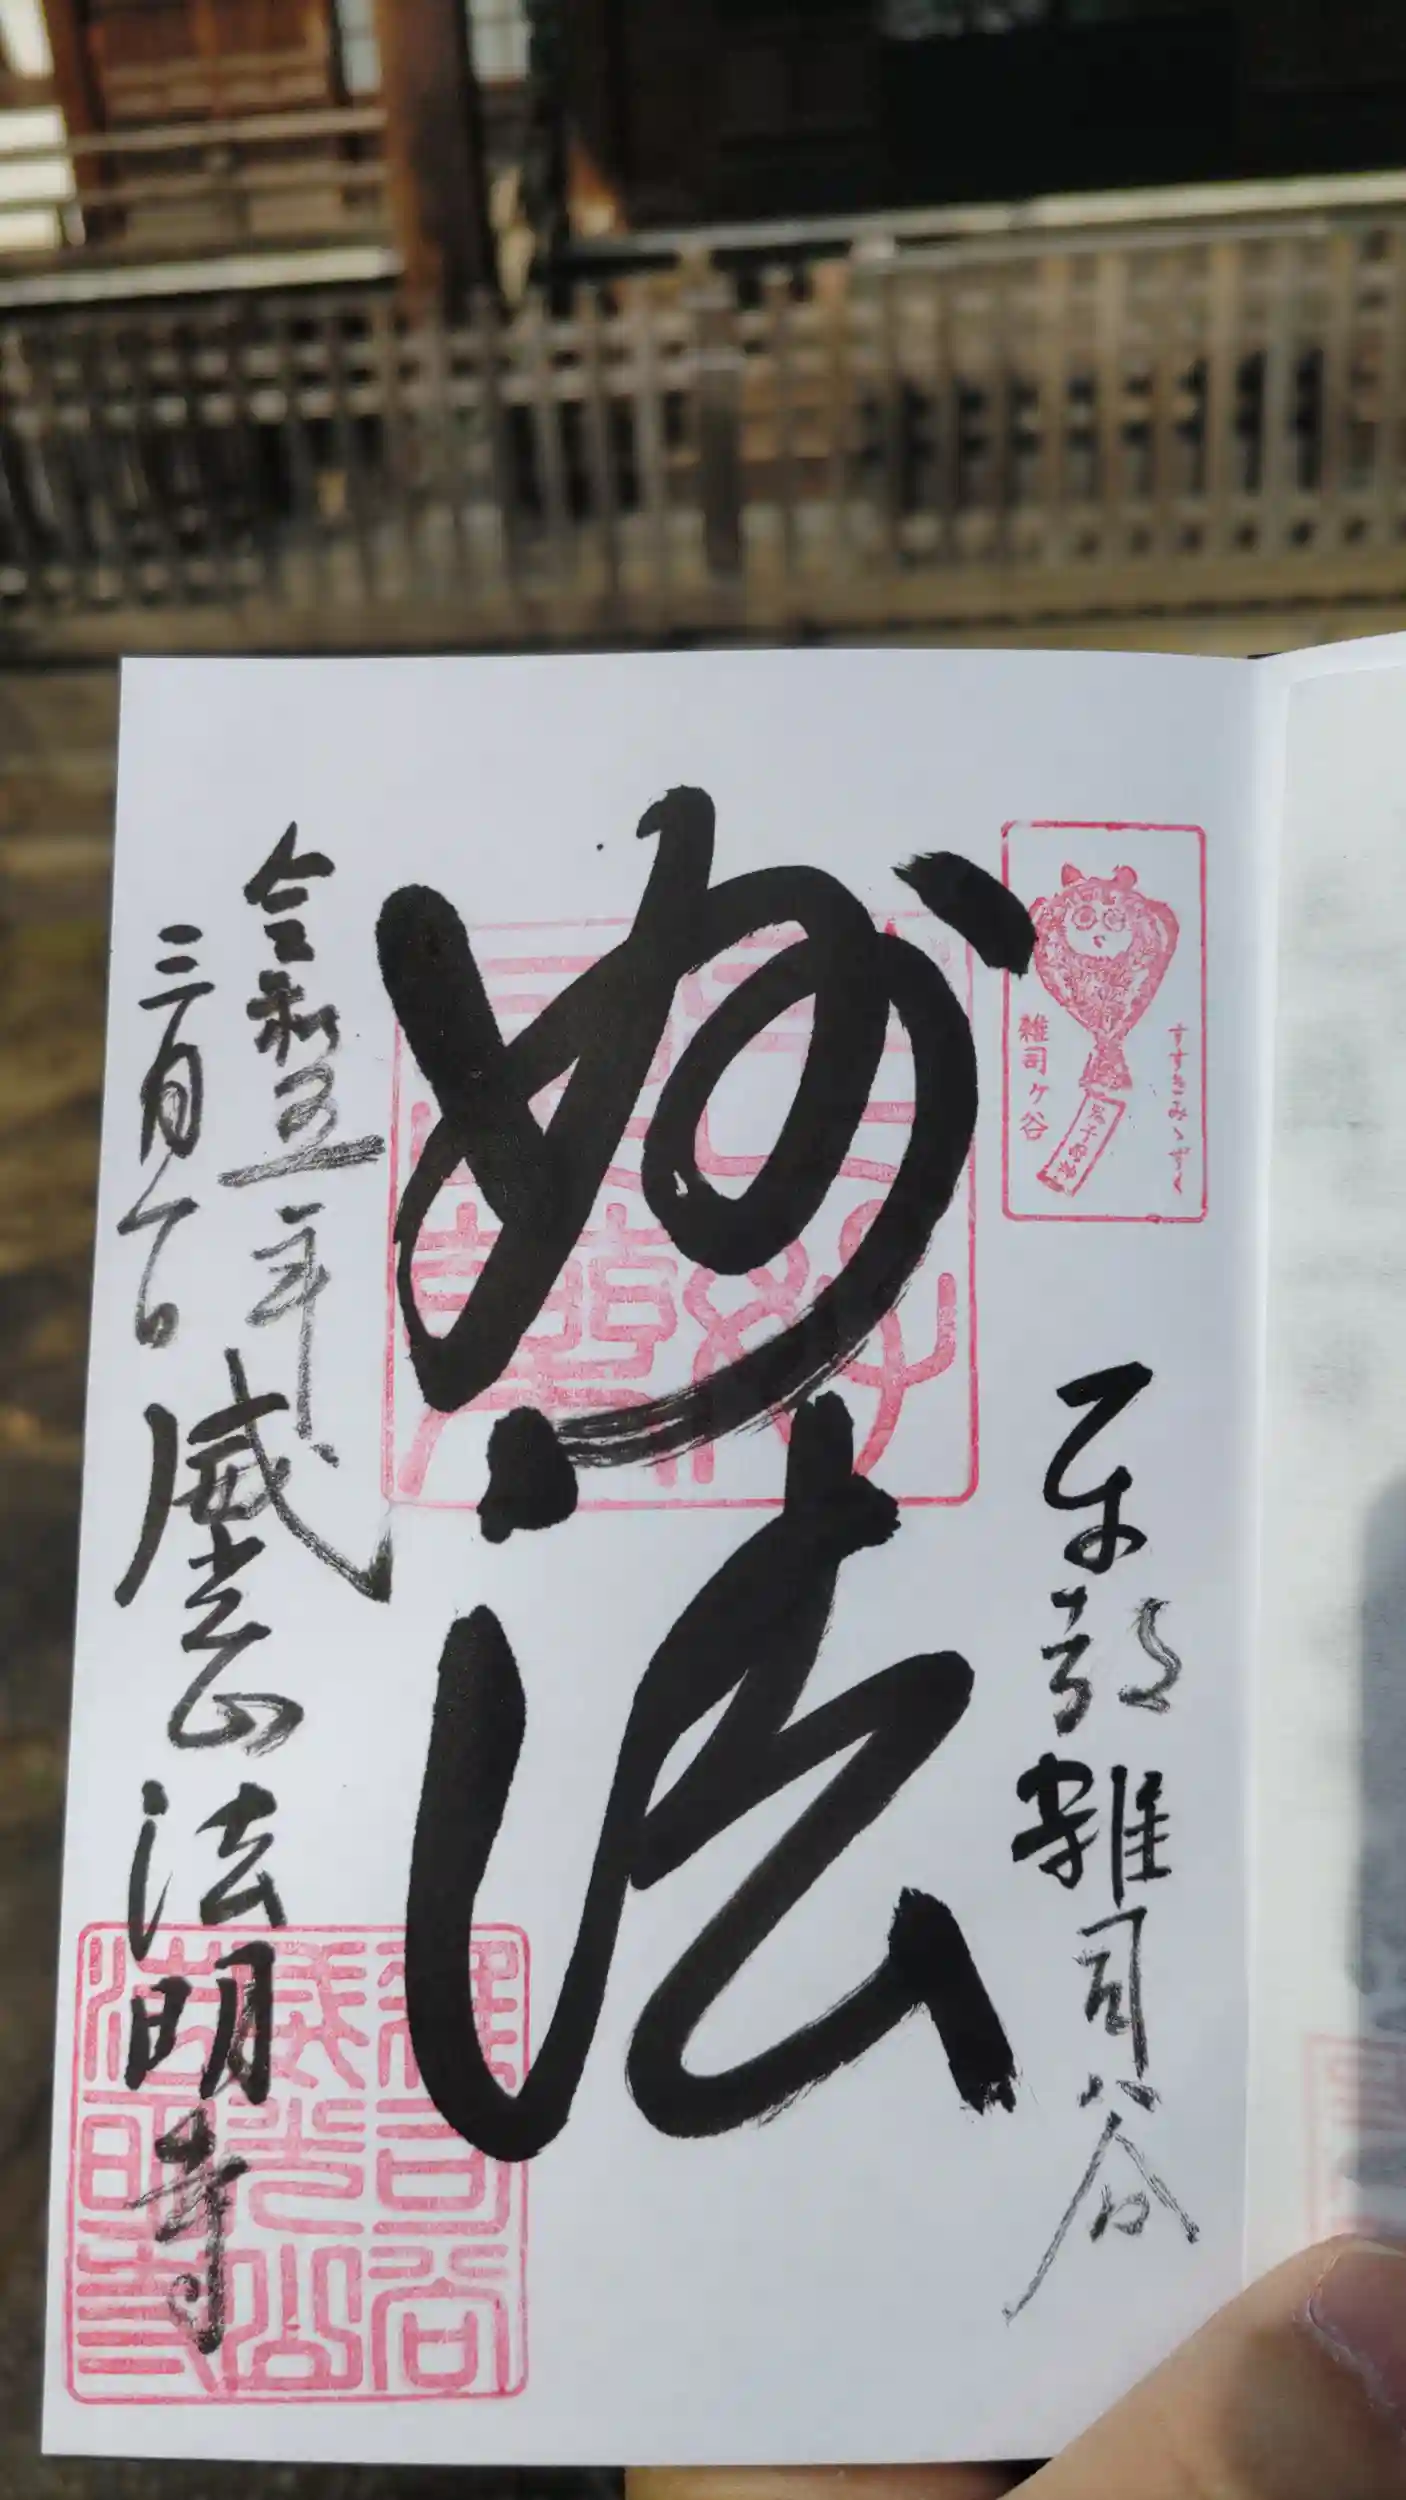 すすきみゝずく
鬼子母神
雑司ヶ谷
東都雑司谷
妙法
令和五年
三月
威光山法明寺
雑司谷
威光山
法明寺